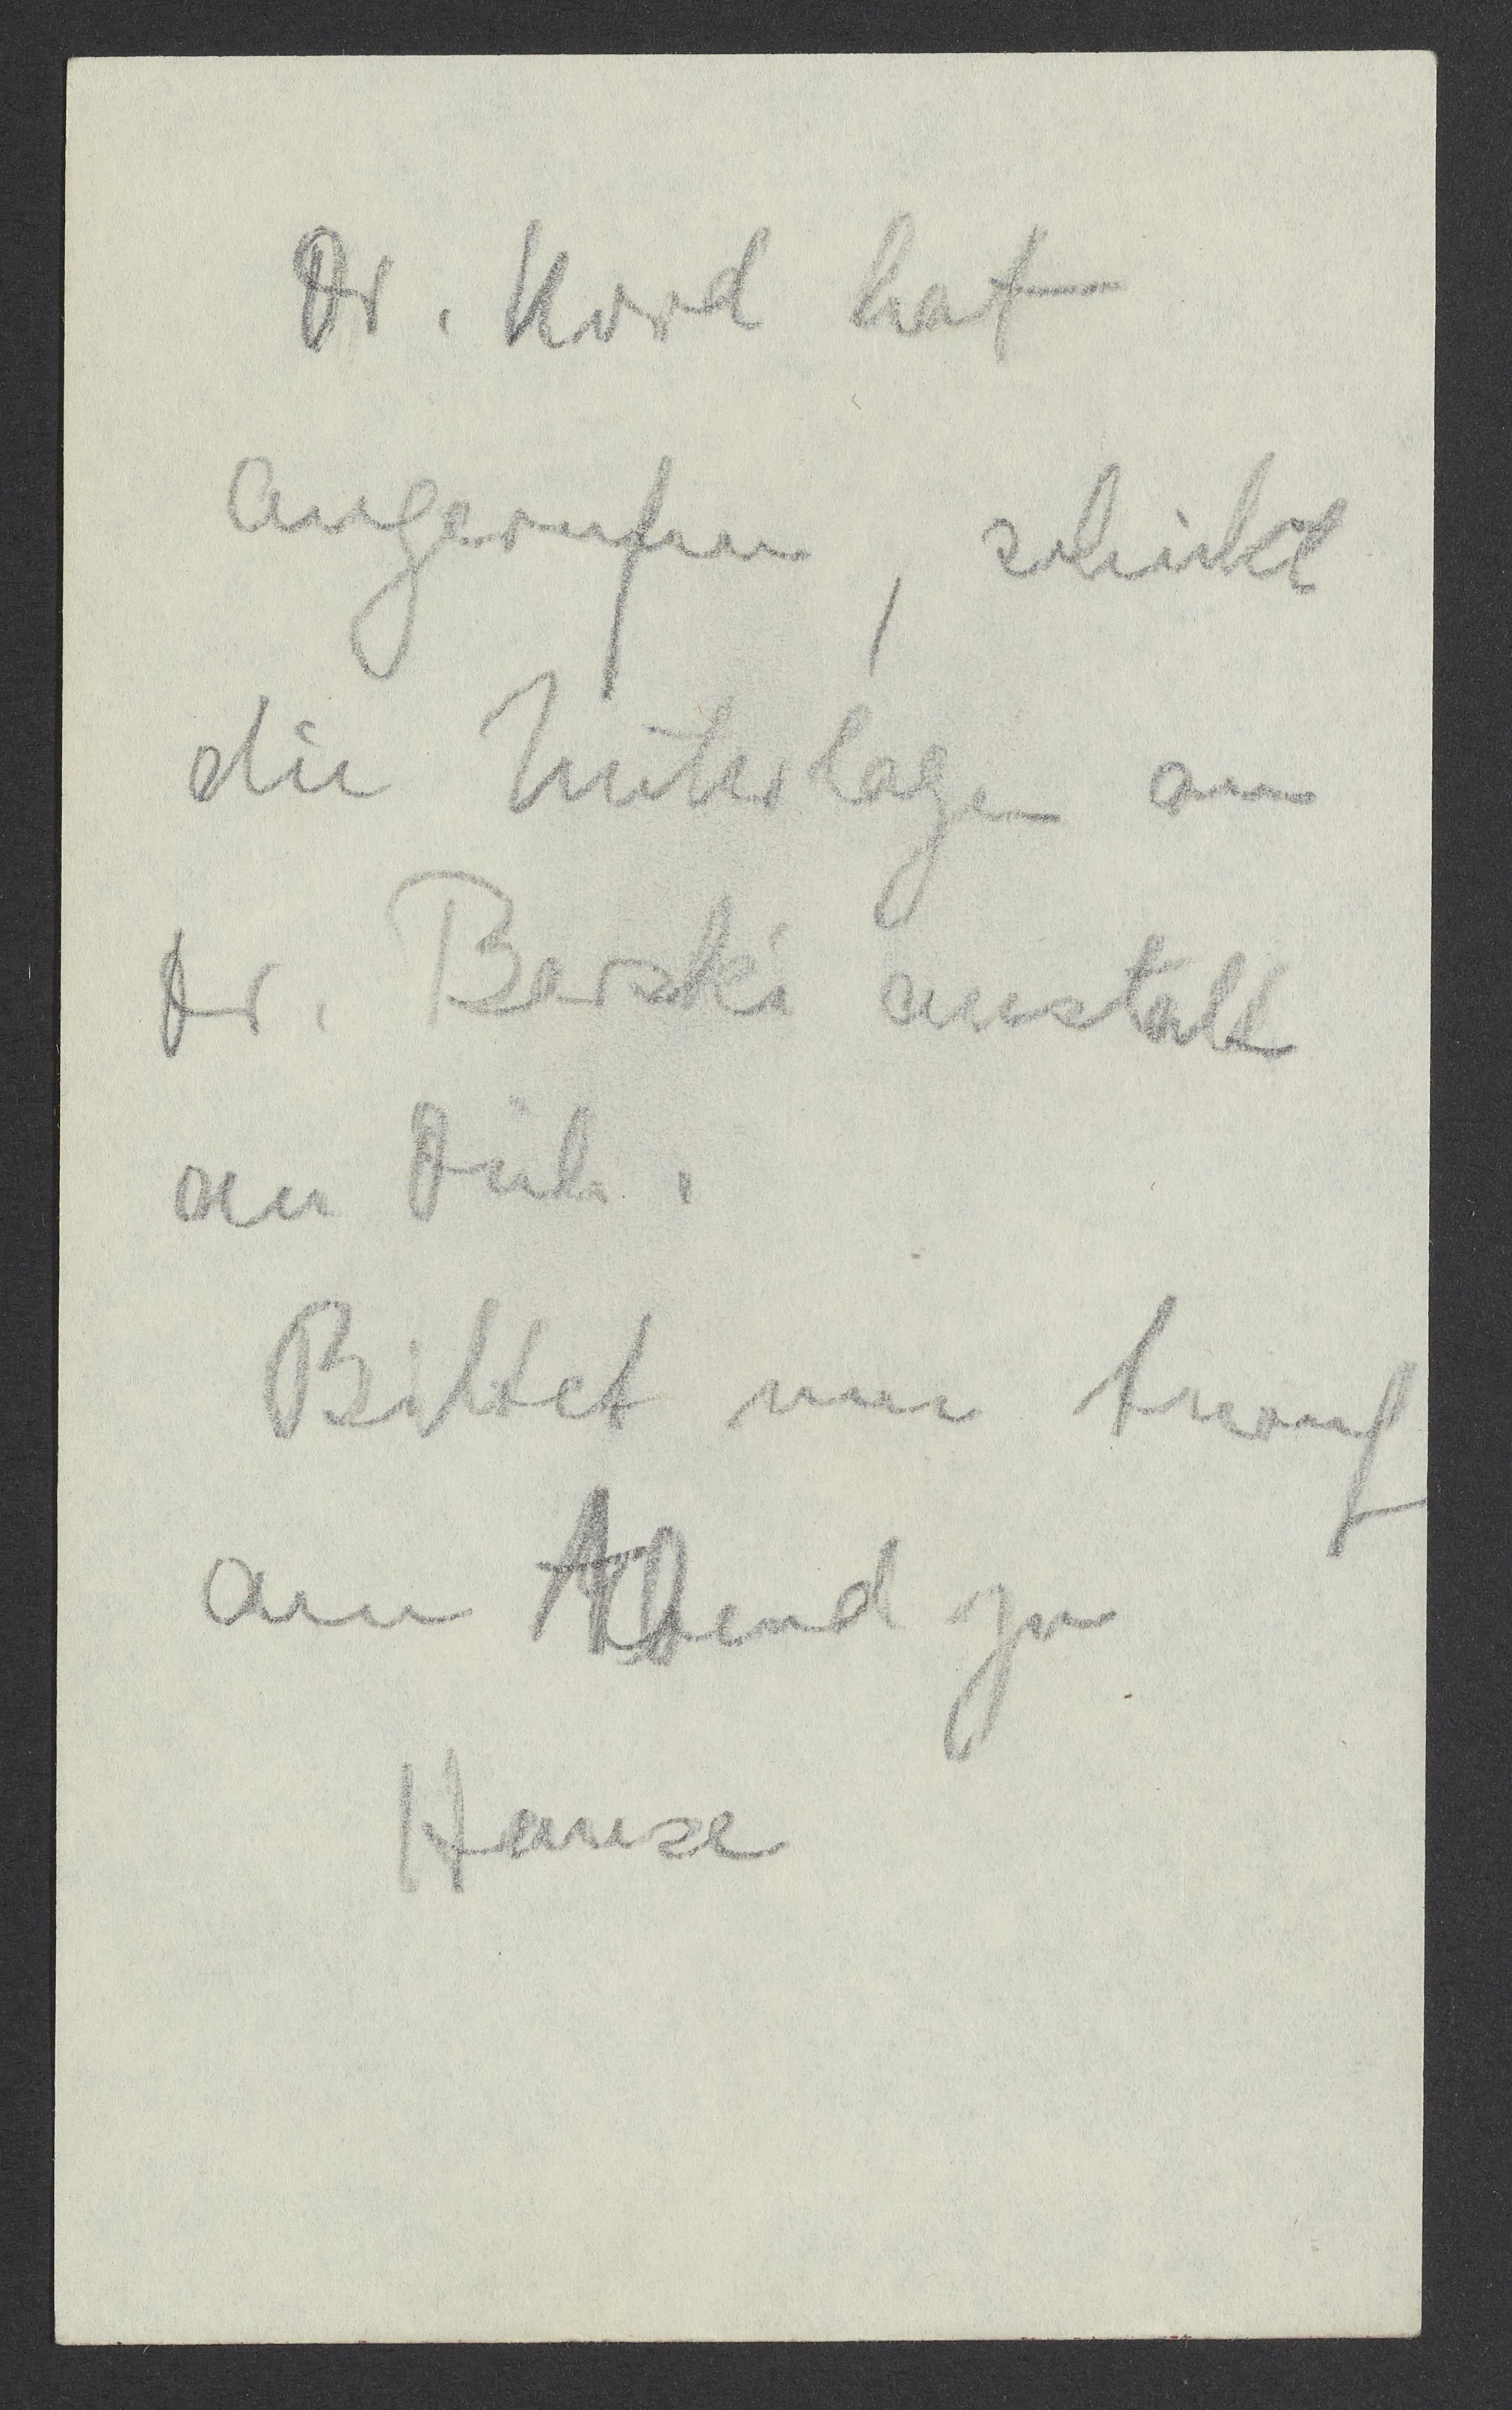 Dr. Kord hat
angerufen, schickt
die Unterlagen an
Dr. Barski anstatt
an Dich.
Bittet um Anruf
am Abend zu
Hause